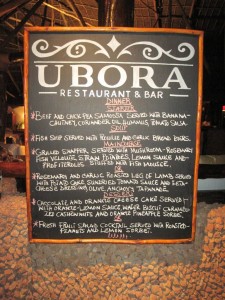 UBORA
RESTAURANT & BAR
DINNER
STARTER
BEEF AND CHICK PEA SAMOOSA SERVED WITH BANANA-
CHUTNEY, CORIANDER OIL, HUMMUS, TOMATO SALSA
SOUP
FISH SOUP SERVED WITH ROUILLE AND GARLIC BREAD
MAIN COURSE
GRILLED SNAPPER, SERVED WITH MUSHROOM - ROSEMARY
FISH VELOUTE, STEAM POTATOES, LEMON SAUCE AND-
PROFITEROLES STUFFED WITH FISH MOUSSE.
OR
ROSEMARY AND GARLIC ROASTED LEG OF LAMB SERVED
WITH POTATO CAKE SUNDRIED TOMATO SAUCE AND FETA-
CHEESE DRESSING OLIVE ANCHOVY TAPANADE.
DESSERT
CHOCOLATE AND ORANGE CHEESE CAKE SERVED-
WITH ORANGE-LEMON SAUCE WAFER BISCUIT CARAMEL-
IZED CASHEWNUTS AND ORANGE PINEAPPLE SORBE.
OR
FRESH FRUIT SALAD COCKTAIL SERVED WITH ROASTED-
PEANUTS AND LEMON SORBET.